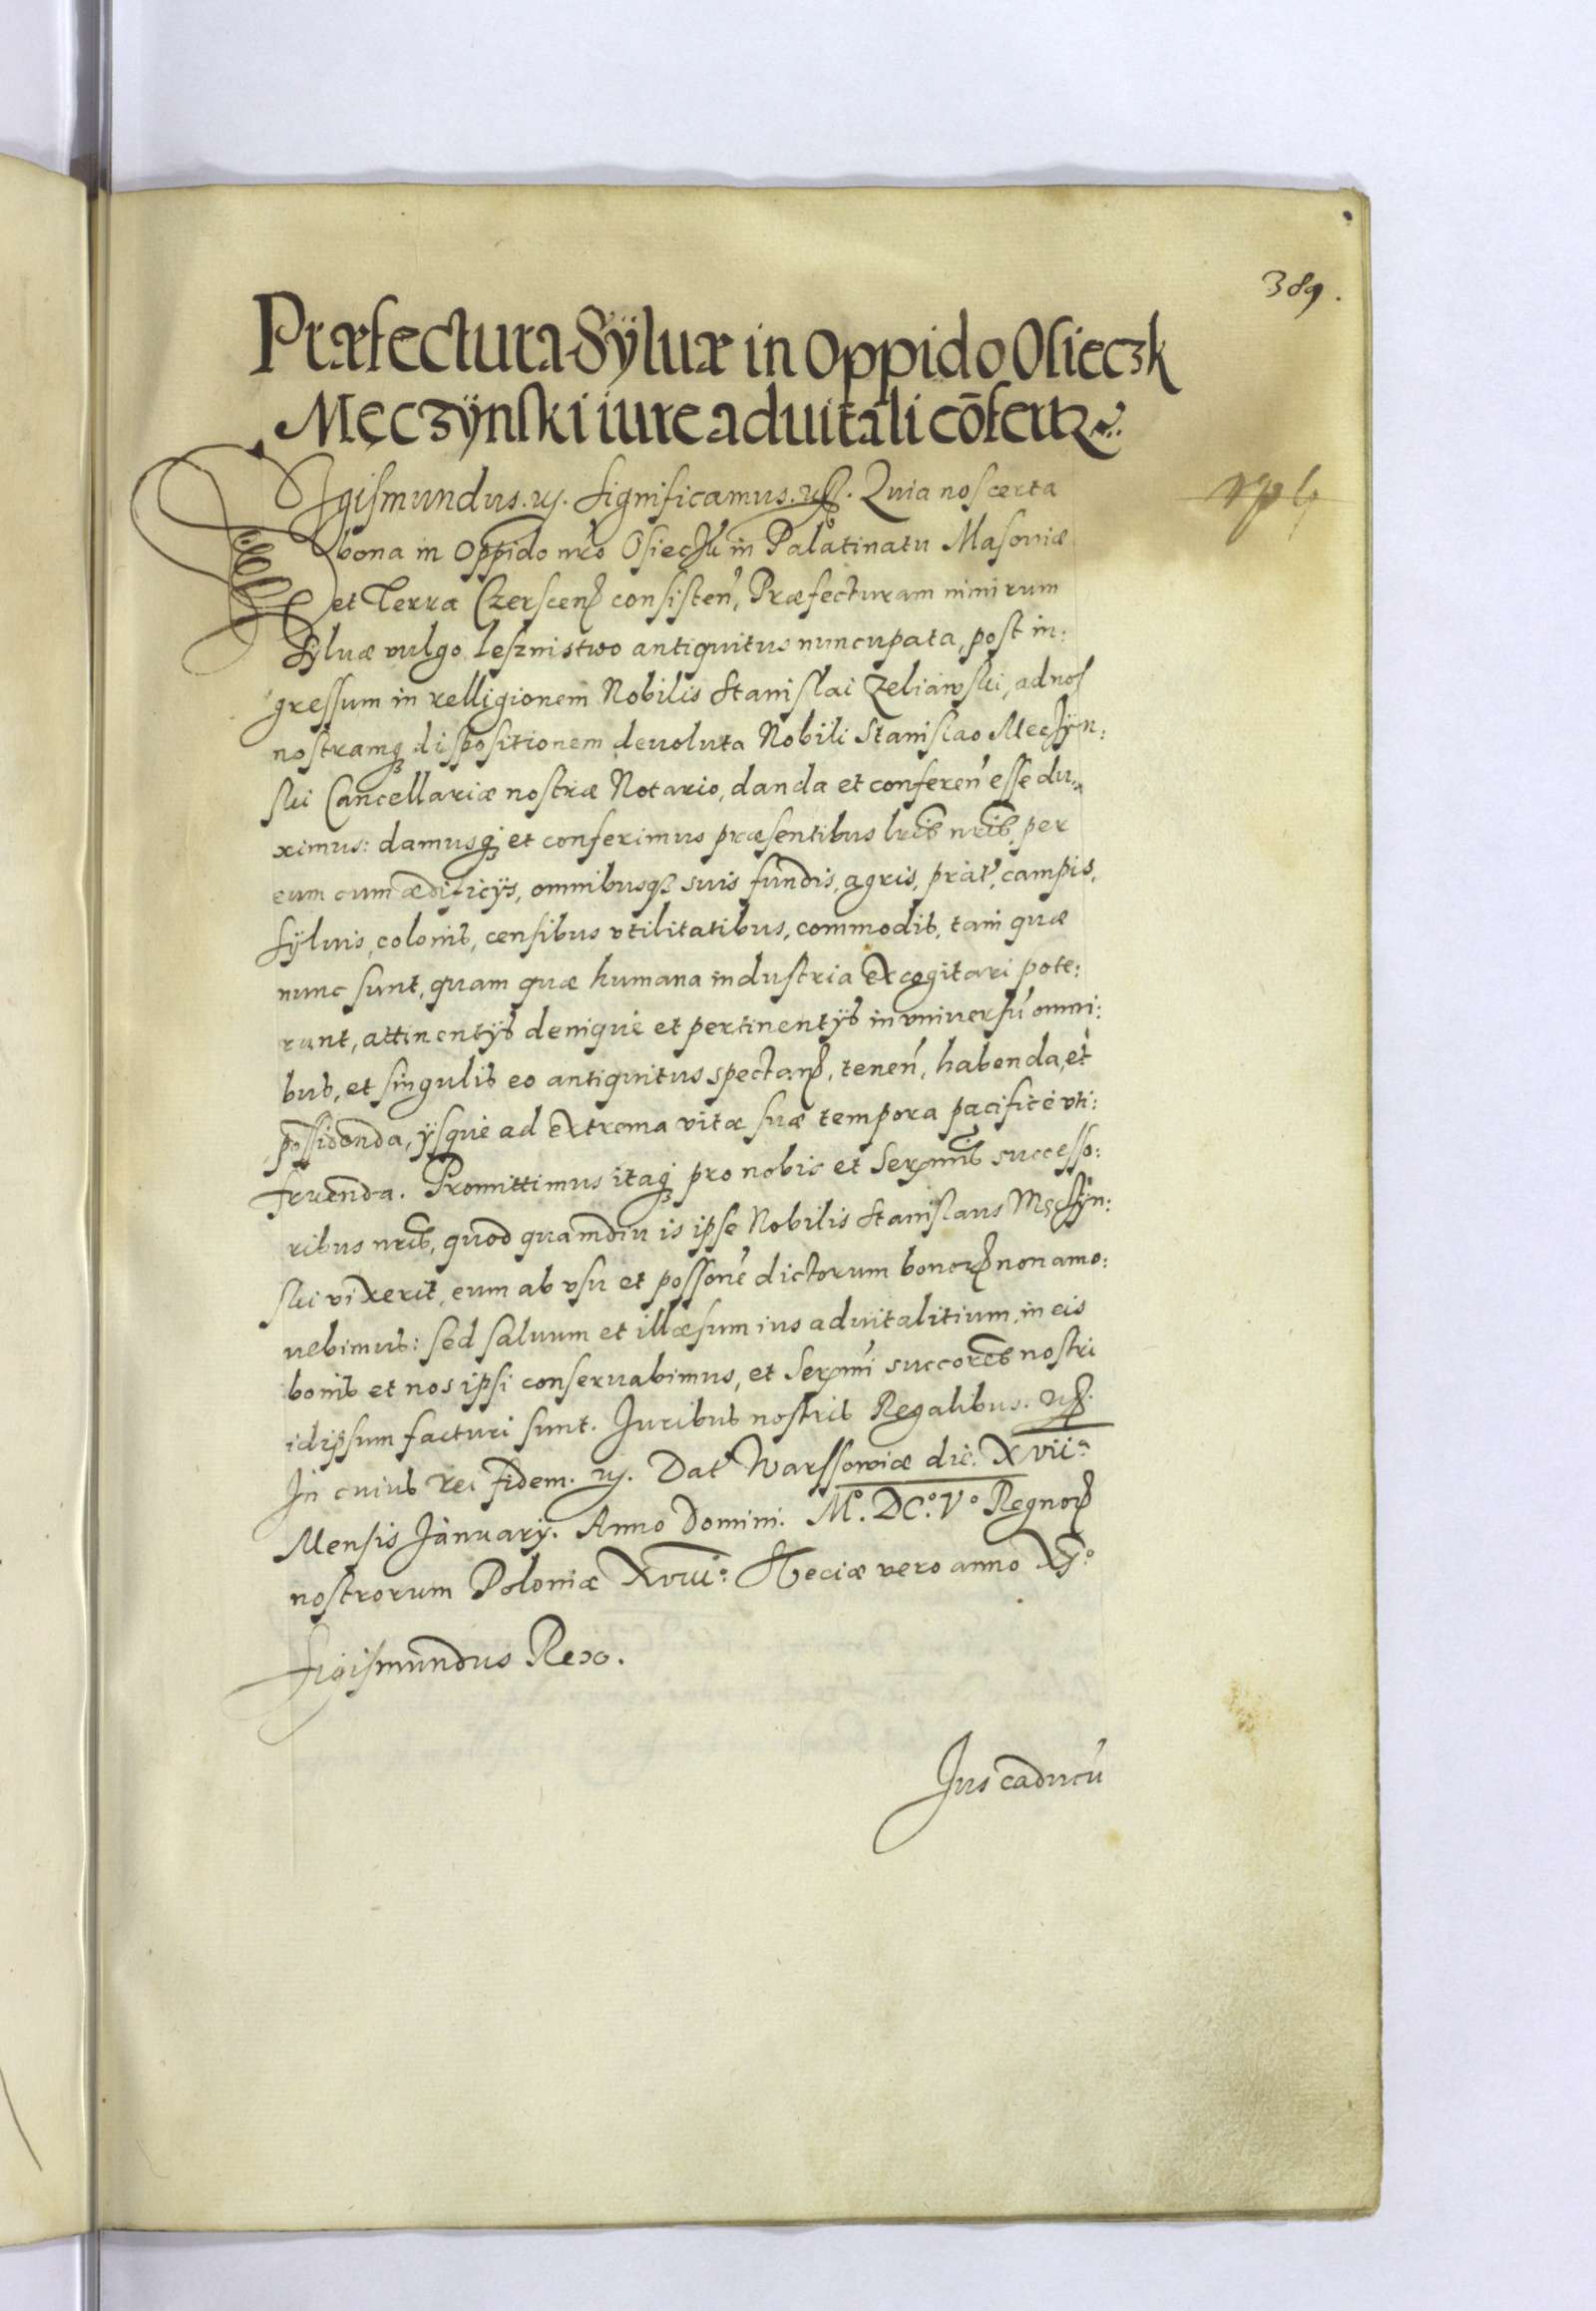 389.
Præfectura Sÿluæ in Oppido Osieczk
Męczÿnski iure aduitali cōfertꝛ
Sigismundus. ꝛc. Significamus. ꝛc. Quia nos certa
bona in Oppido nr̃o Osieczkú in Palatinatu Masoviæ
et Terra Czerscen̄ consisteń, Præfecturam nimirum
Sÿluæ vulgo Lesznistwo antiquitus nuncupata, post in:
gressum in relligionem Nobilis Stanislai Zeliawski, ad nos
nostramqꝫ dispositionem deuoluta Nobili Stanislao Meczÿn:
ski Cancellariæ nostræ Notario, danda et confereń esse du:
ximus: damusqꝫ et conferimus præsentibus lrīb nrīb, per
eum cum ædificÿs, omnibusqꝫ suis fundis, agris, prat', campis,
sÿluis, colonis, censibus vtilitatibus, commodis, tam quæ
nunc sunt, quam quæ humana industria excogitari pote:
runt, attinentÿs denique et pertinentÿs in vniuersú omni:
bus, et singulis eo antiquitus spectan̄, teneń, habenda, et
possidenda, vsque ad extrema vitæ suæ tempora pacificè vti:
fruenda. Promittimus itaqꝫ pro nobis et Serẽnīb successo:
ribus nrīb, quod quamdiu is ipse Nobilis Stanislaus Męczÿn:
ski vixerit, eum ab vsu et possonē dictorum bonorꝝ non amo:
uebimus: sed saluum et illæsum ius aduitalitium, in eis
bonis et nos ipsi conseruabimus, et Serẽnī succoreś nostri
idipsum facturi sunt. Juribus nostris Regalibus. ꝛc.
In cuius rei fidem. ꝛc. Dat' Warssowiæ die. Xvii.ª
Mensis January. Anno Domini. M.º DC.º V.º Regnorꝝ
nostrorum Poloniæ Xviii.º Sueciæ vero anno XIJ.º
Sigismundus Rex.
Jus caducú